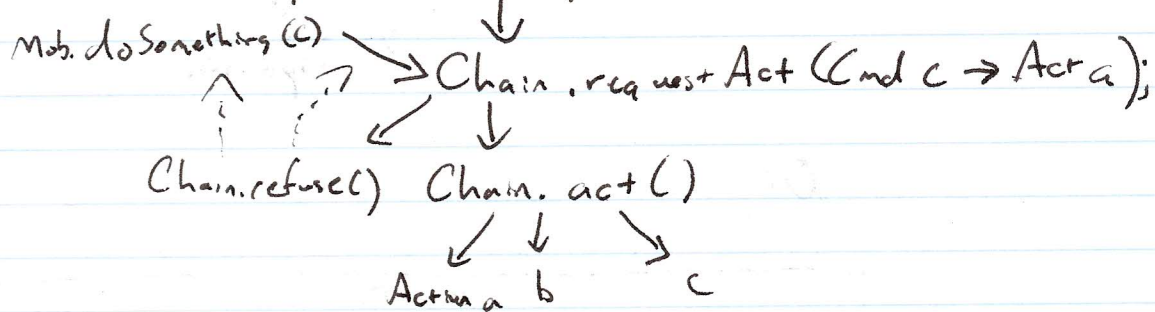 Mob.doSomething(c)
Chain.requestAct(Cmd c → Act a);
Chain.refuse() Chain.act()
Action a b c